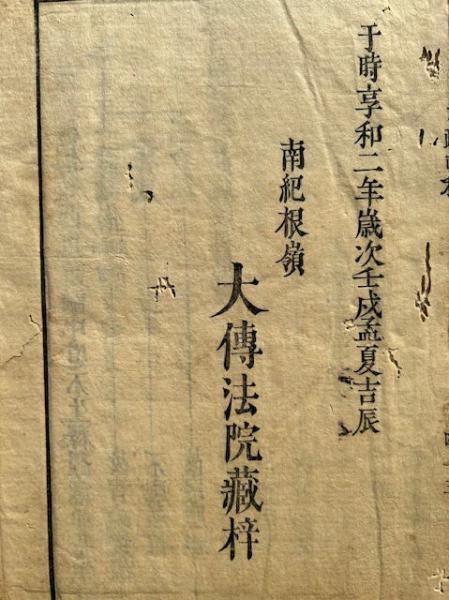 于時享和二年歳次壬戌孟夏吉辰
南紀根嶺
大傳法院藏梓